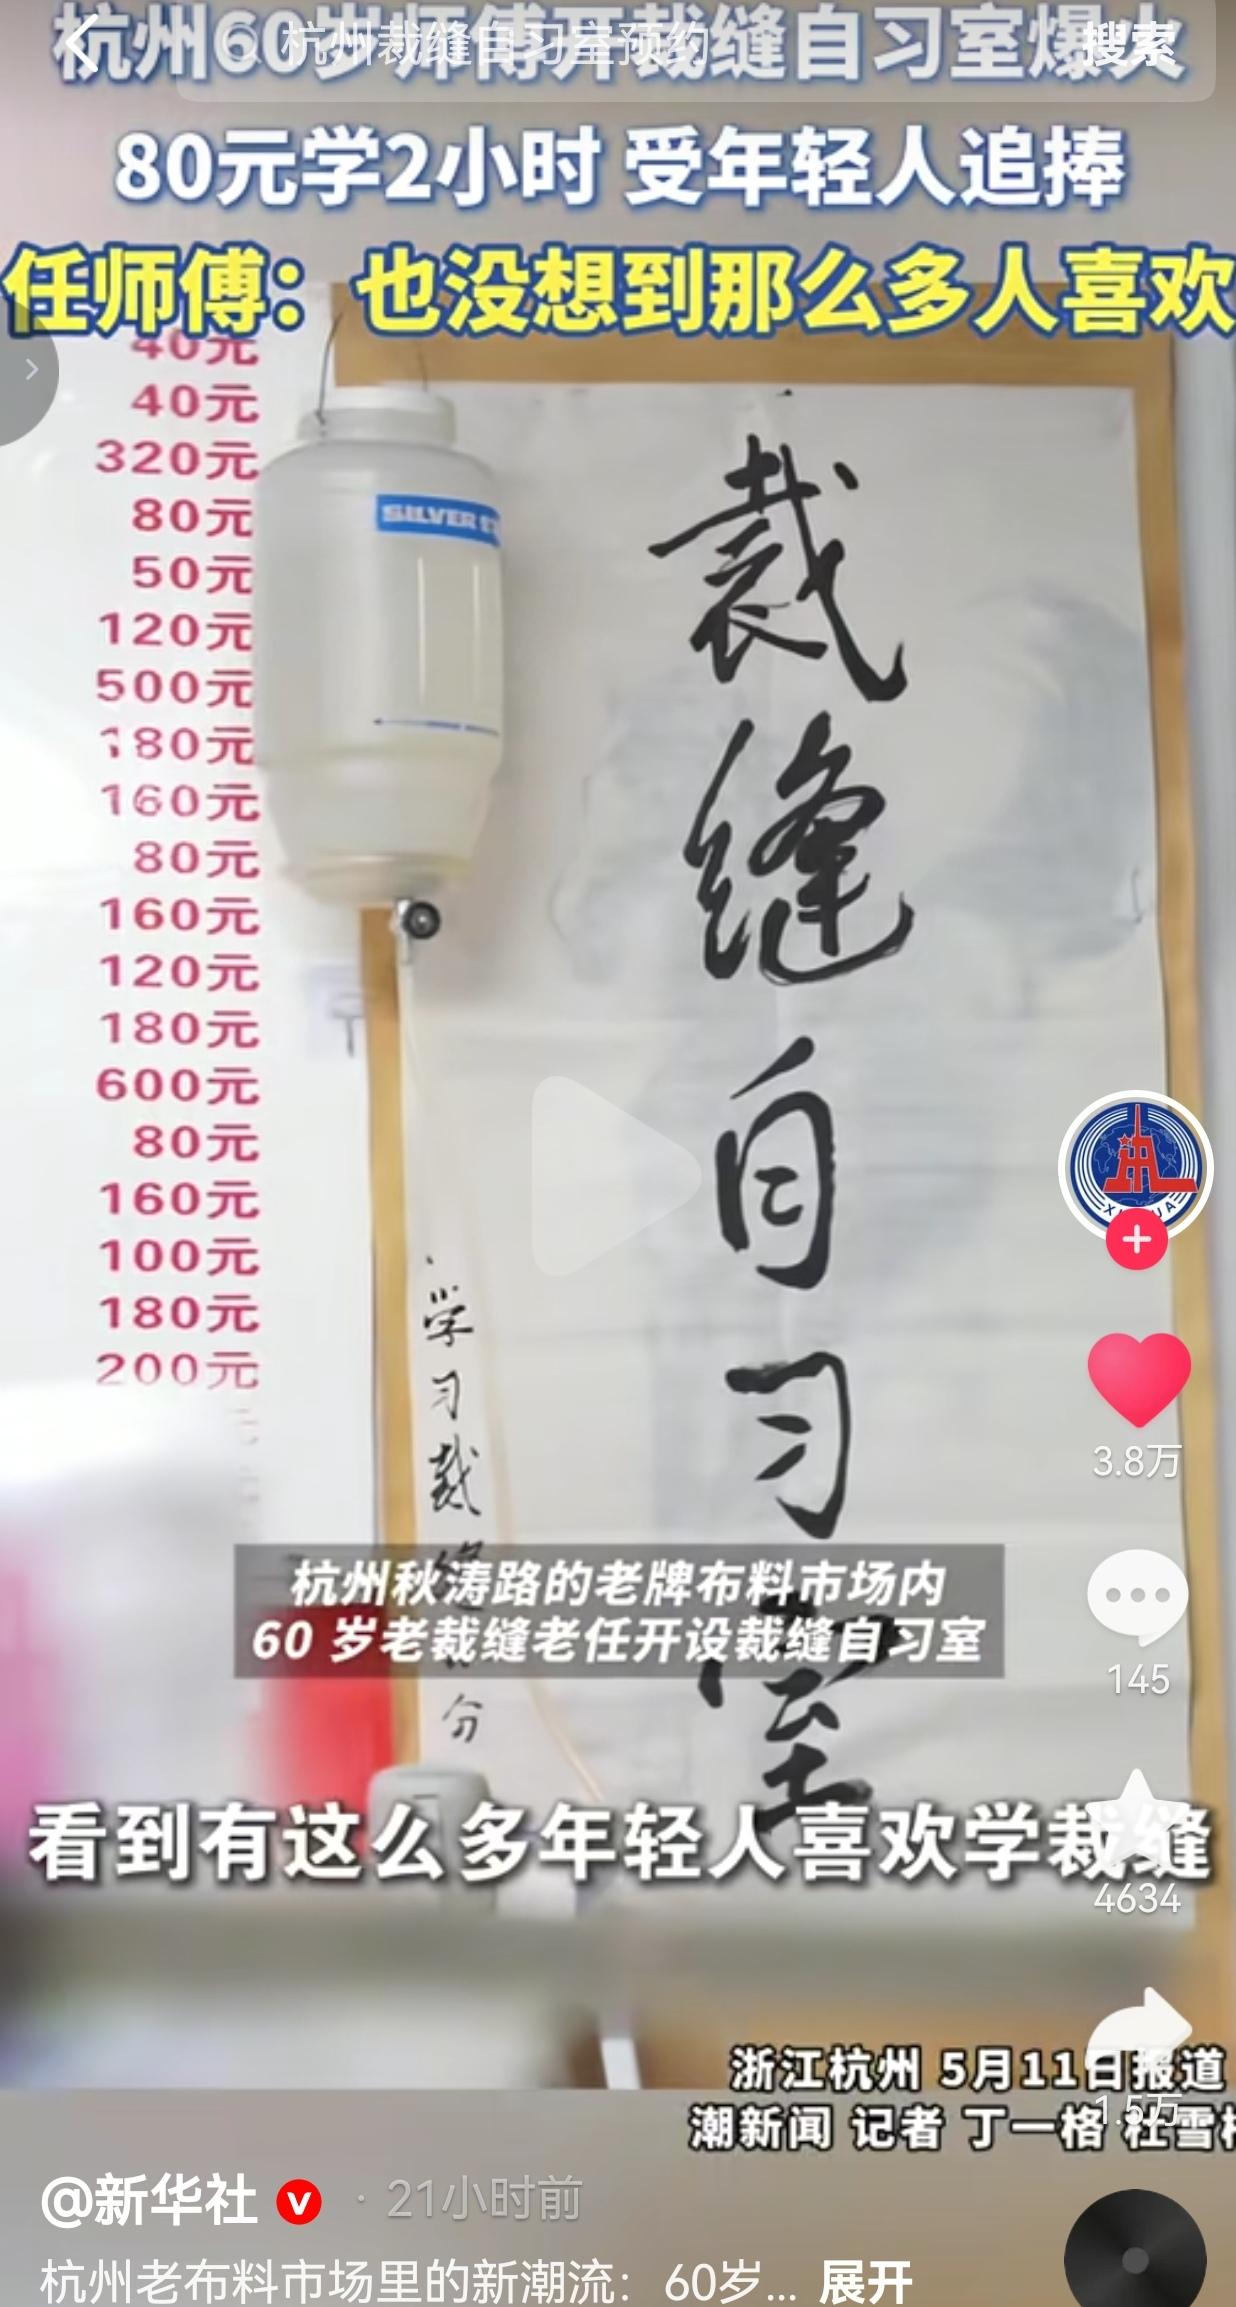 杭州60岁师傅开裁缝自习室爆火
杭州裁缝自习室预约
搜索
80元学2小时 受年轻人追捧
任师傅：也没想到那么多人喜欢
40元
40元
320元
80元
50元
120元
500元
180元
160元
80元
160元
120元
180元
600元
80元
160元
100元
180元
200元
SILVER
裁缝自习室
学习裁缝
分
XINHUA
3.8万
145
4634
1.5万
杭州秋涛路的老牌布料市场内
60 岁老裁缝老任开设裁缝自习室
看到有这么多年轻人喜欢学裁缝
浙江杭州 5月11日报道
潮新闻 记者 丁一格 杜雪
@新华社 · 21小时前
杭州老布料市场里的新潮流：60岁... 展开